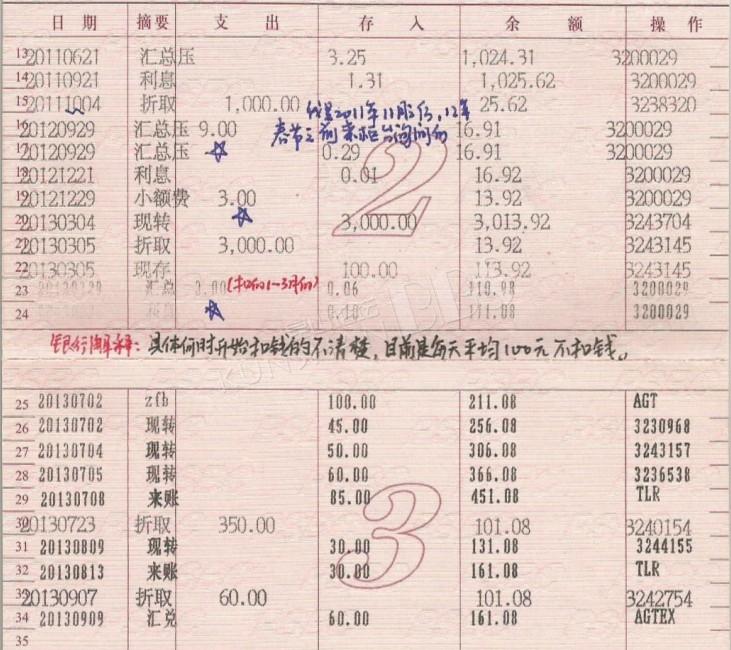 日期 摘要 支出 存入 余额 操作
13 20110621 汇总压 3.25 1,024.31 3200029
14 20110921 利息 1.31 1,025.62 3200029
15 20111004 折取 1,000.00 25.62 3238320
我是2011年11月份,12年
春节之前来柜台询问的
16 20120929 汇总压 9.00 16.91 3200029
17 20120929 汇总压 0.29 16.91 3200029
18 20121221 利息 0.01 16.92 3200029
19 20121229 小额费 3.00 13.92 3200029
20 20130304 现转 3,000.00 3,013.92 3243704
21 20130305 折取 3,000.00 13.92 3243145
22 20130305 现存 100.00 113.92 3243145
23 汇总 3.00 (扣的1~3月的) 0.06 110.98 3200029
24 0.10 111.08 3200029
2
银行解释: 具体何时开始扣钱的不清楚,目前是每天平均100元不扣钱。
25 20130702 zfb 100.00 211.08 AGT
26 20130702 现转 45.00 256.08 3230968
27 20130704 现转 50.00 306.08 3243157
28 20130705 现转 60.00 366.08 3236538
29 20130708 来账 85.00 451.08 TLR
30 20130723 折取 350.00 101.08 3240154
31 20130809 现转 30.00 131.08 3244155
32 20130813 来账 30.00 161.08 TLR
33 20130907 折取 60.00 101.08 3242754
34 20130909 汇兑 60.00 161.08 AGTEX
35
3